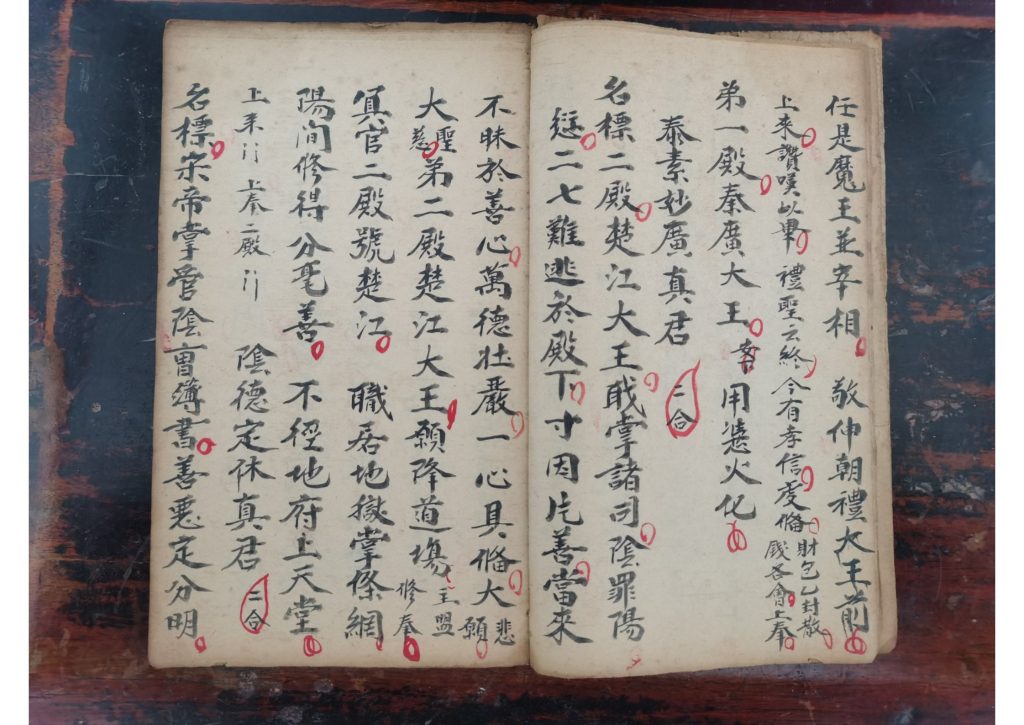 任是魔王並宰相　敬伸朝禮大王前
上來讚嘆以畢禮聖云終今有孝信虔俻財包乙封散錢各會上奉
弟一殿秦廣大王案下用憑火化
泰素妙廣真君　二合
名標二殿楚江大王职掌諸司陰罪陽
愆二七難逃於殿下寸因片善當來
不昧於善心萬德壮嚴一心具俻大悲願
大聖慈弟二殿楚江大王願降道塲主盟修奉
冥官二殿號楚江　職居地獄掌條網
陽间修得分毫善　不徑地府上天堂
上来〻上奉二殿〻　陰德定休真君　二合
名標宋帝掌管陰曹簿書善悪定分明